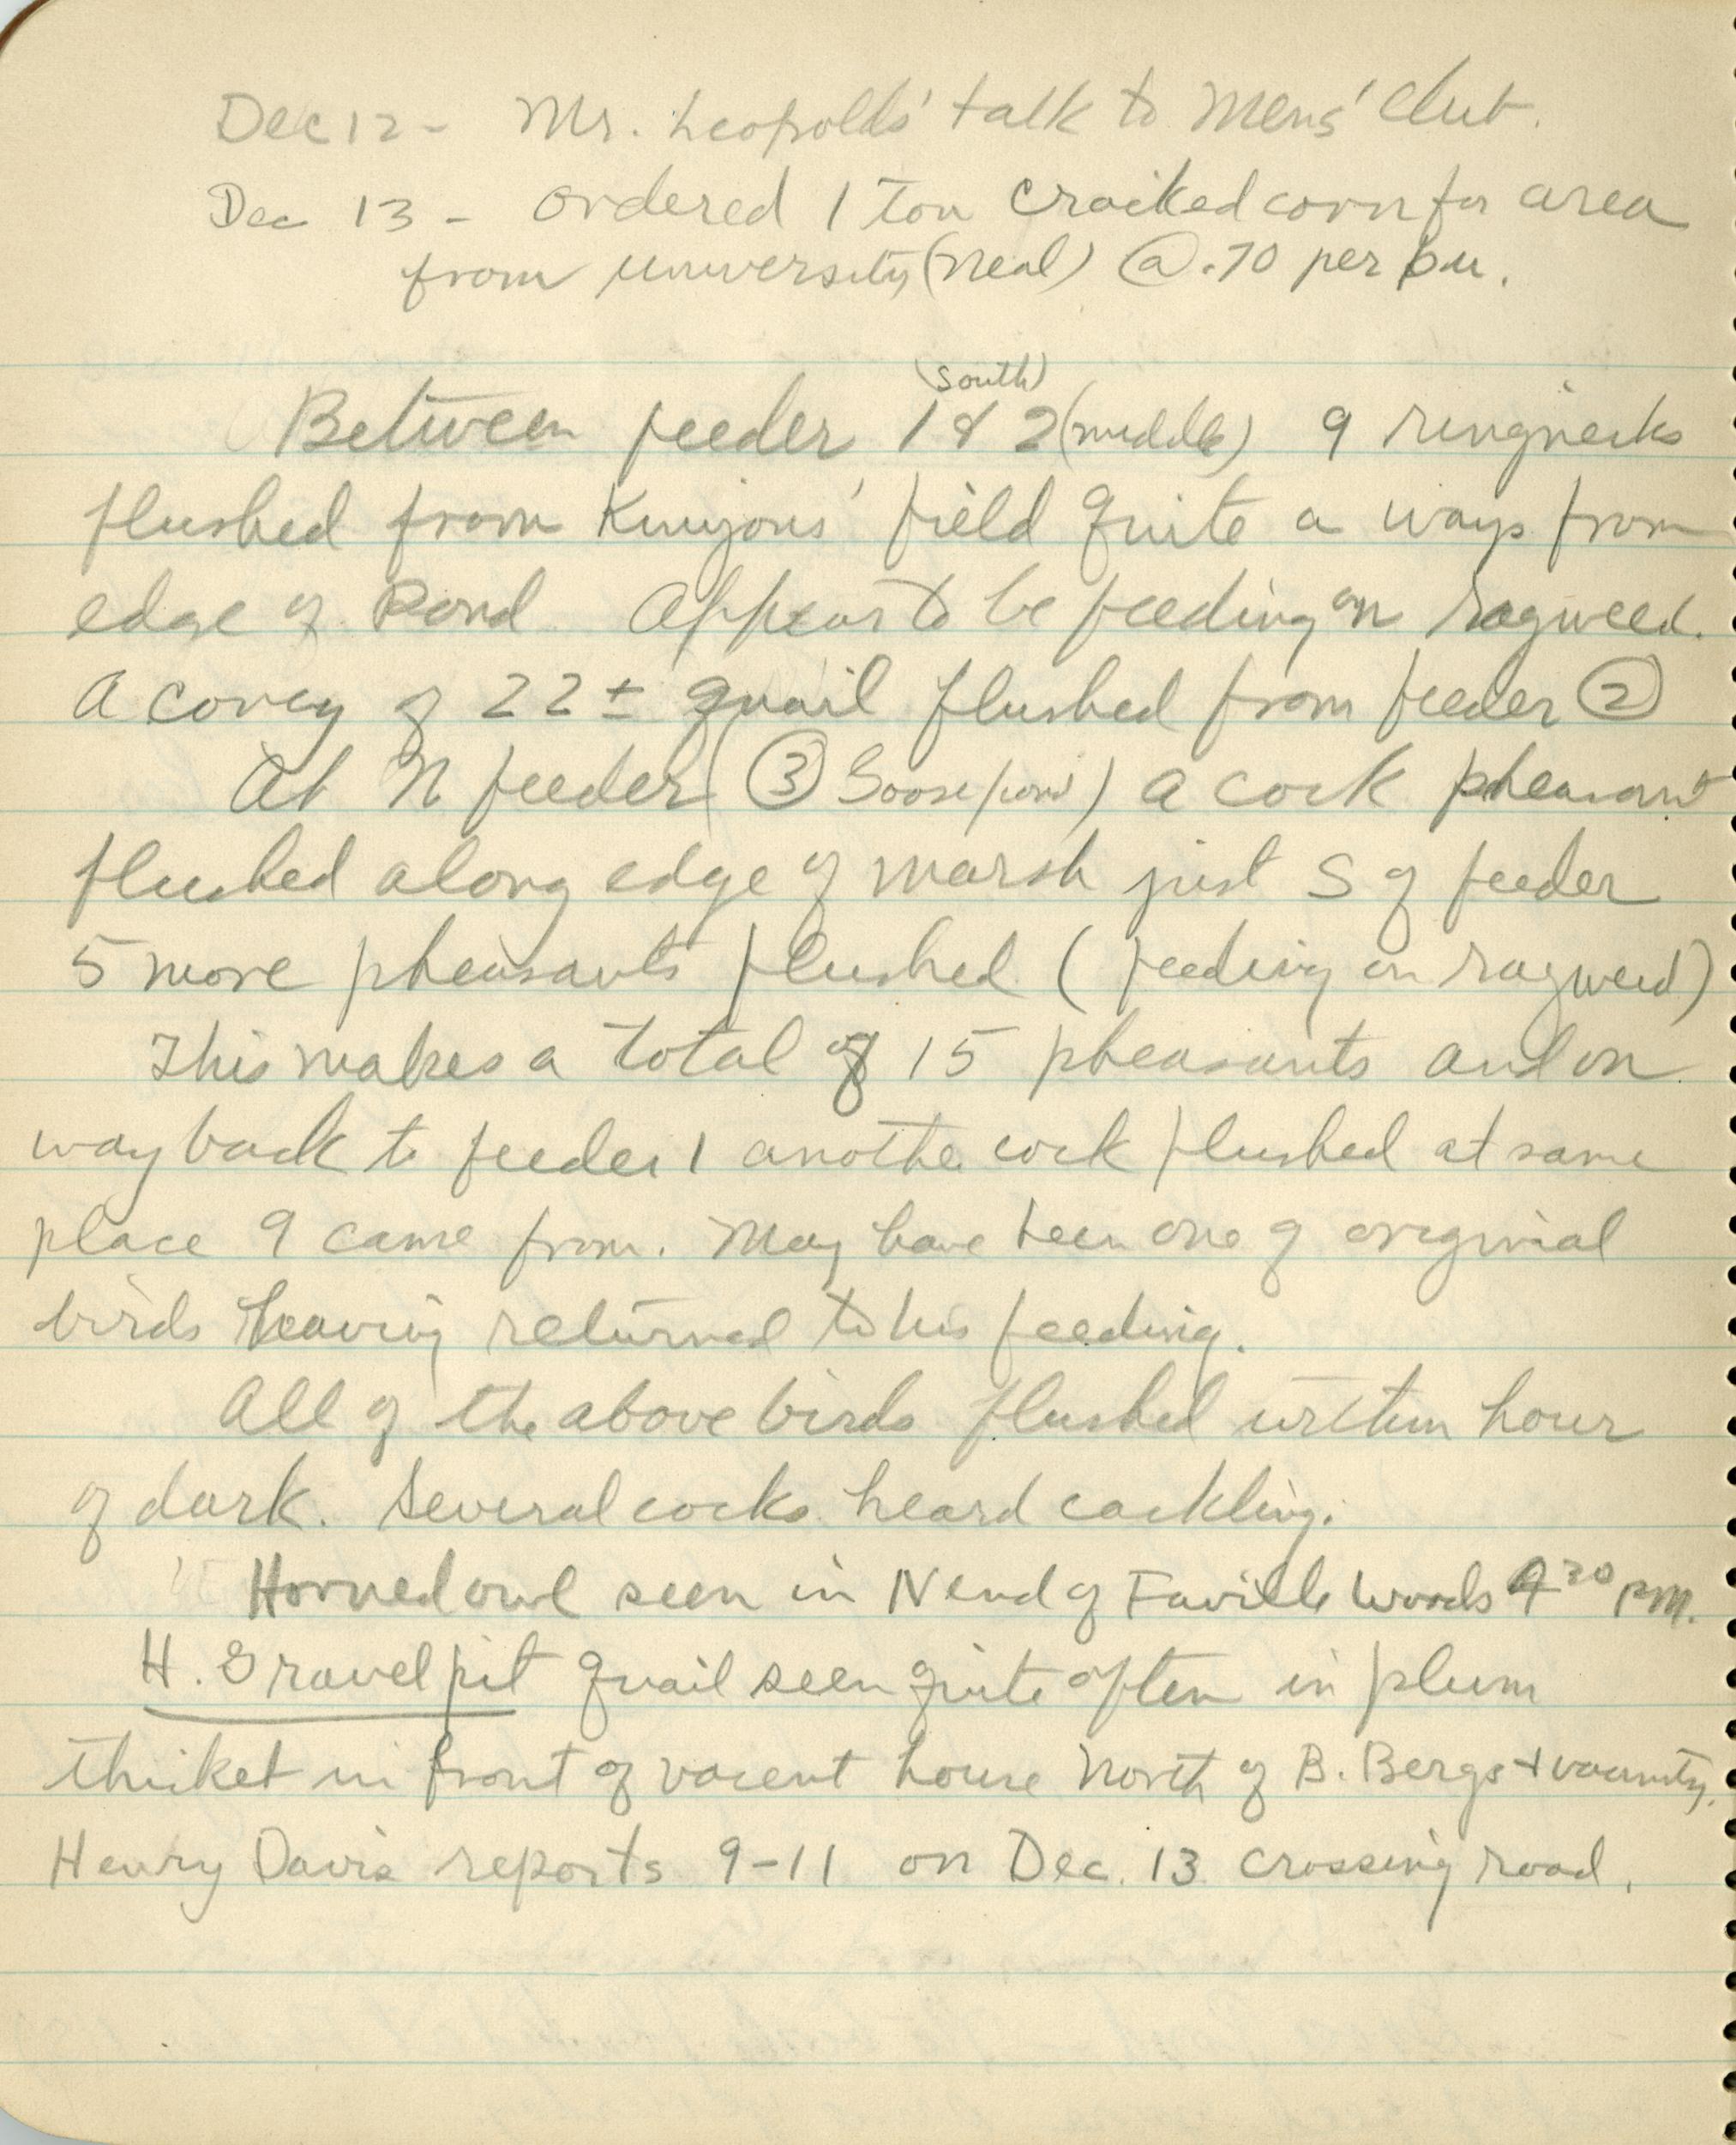 Dec 12 - Mr. Leopolds' talk to Mens' Club.
Dec 13 - Ordered 1 ton cracked corn for area
from university (Neal) @ .70 per bu.
(South)
Between feeder 1 & 2 (middle) 9 ringnecks
flushed from Kinyons' field quite a ways from
edge of Pond. Appear to be feeding on ragweed.
A covey of 22 ± quail flushed from feeder ②
At N feeder (③ Goose pond) a cock pheasant
flushed along edge of marsh just S of feeder
5 more pheasants flushed (feeding on ragweed)
This makes a total of 15 pheasants and on
way back to feeder 1 another cock flushed at same
place 9 came from. May have been one of original
birds having returned to his feeding.
All of the above birds flushed within hour
of dark. Several cocks heard cackling.
Horned owl seen in N end of Faville Woods 4 30 PM.
H. Gravel pit quail seen quite often in plum
thicket in front of vacent house North of B. Bergs + vacinity.
Henry Davis reports 9-11 on Dec. 13 crossing road.